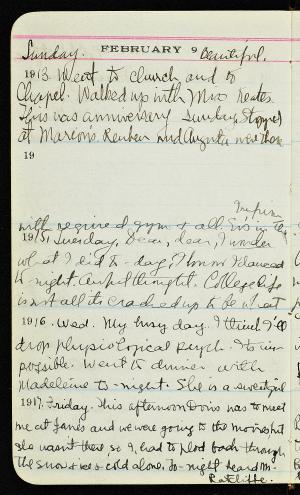 Sunday. FEBRUARY 9 Beautiful.
1913. Went to church and to
Chapel. Walked up with Miss Keates.
This was anniversary Sunday. Stopped
at Marcon's Reuben and Augusta were there
19
with required gym & all. Evs in the
1915. Tuesday. Dear, dear, I wonder
what I did to-day. I know I danced
to-night. Awful thought. College life
is not all its cracked up to be what
1916. Wed. My busy day. I think I'll
drop physiological psych. It's im
possible. Went to dinner with
Madeleine to-night. She is a sweet girl
1917. Friday. This afternoon Doris was to meet
me at Janes and we were going to the movies but
she wasn't there so I had to plod back through
the snow & ice & cold alone. To-night heard Mr.
Ratcliffe.